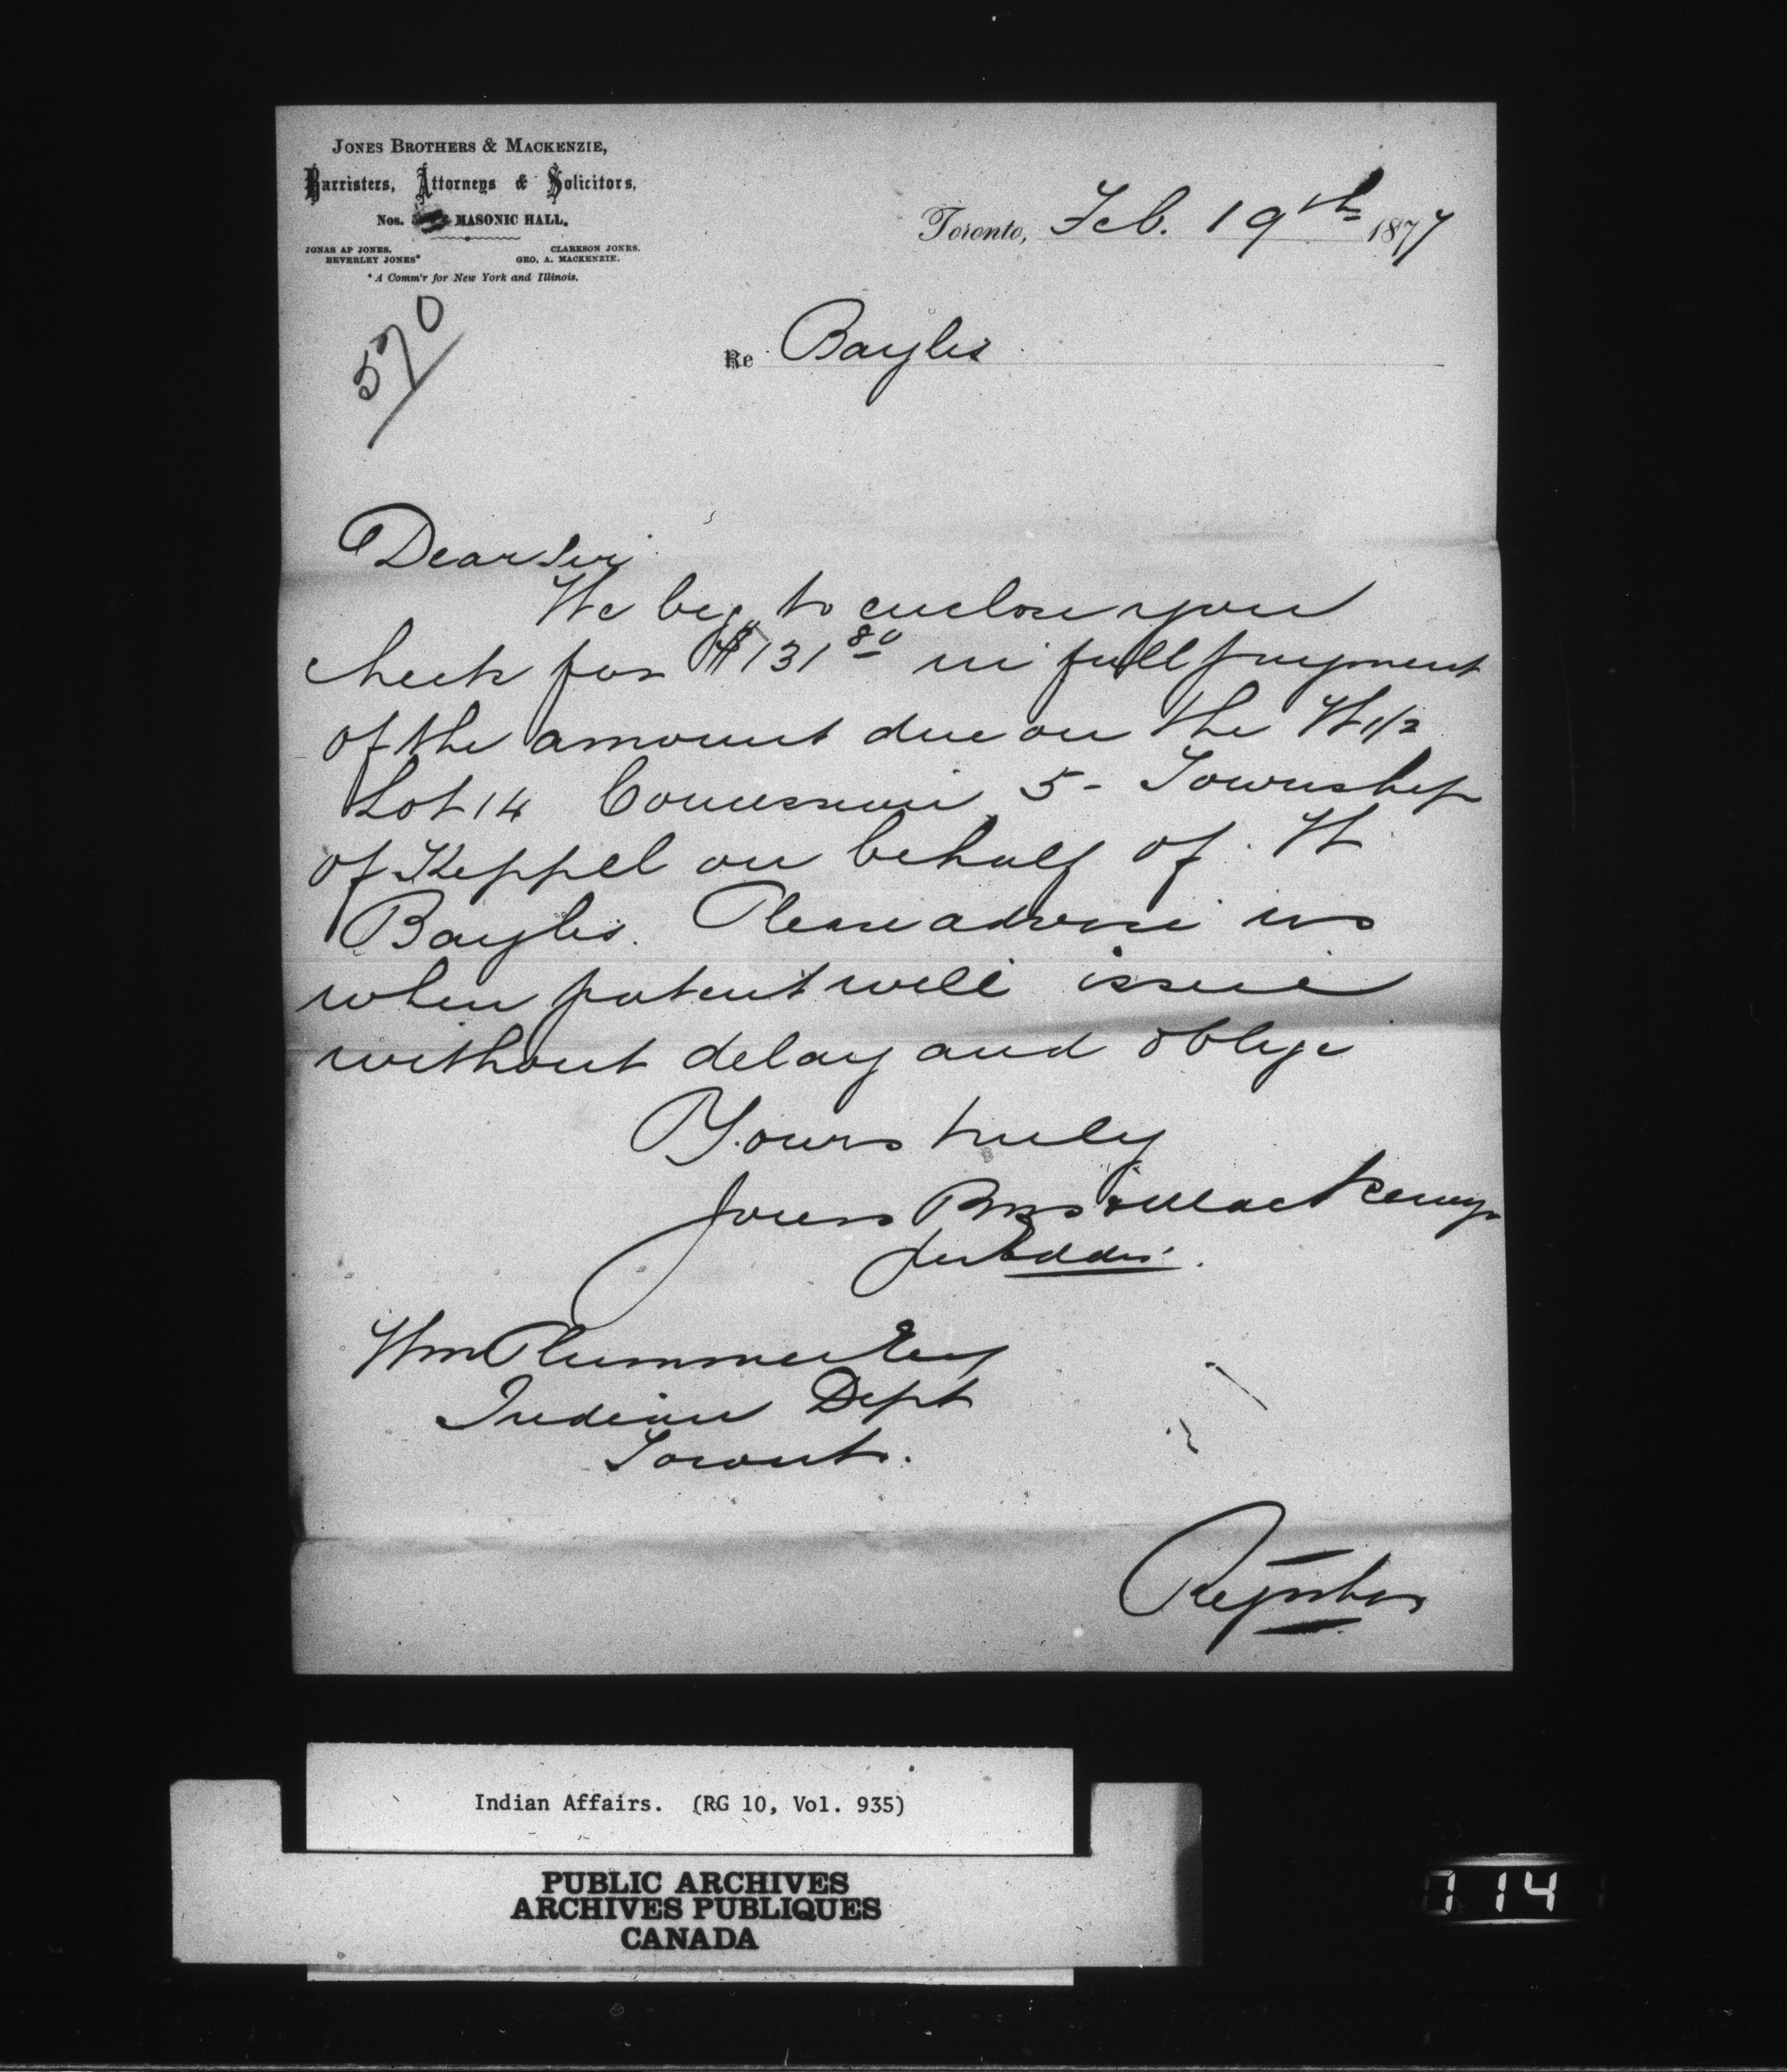 JONES BROTHERS & MACKENZIE,
Barristers, Attorneys & Solicitors,
Nos. MASONIC HALL.
JONAS AP JONES. CLARKSON JONES.
BEVERLEY JONES* GEO. A. MACKENZIE.
* A Comm'r for New York and Illinois.
Toronto, Feb. 19th 1877
570
Re Bayles
Dear Sir
We beg to enclose you
check for $131 80 in full payment
of the amount due on the W 1/2
Lot 14 Concession 5 - Township
of Keppel on behalf of W
Bayles. Please advise us
when patent will issue
without delay and oblige
Yours truly
Jones Bros & Mackenzie
Wm Plummer Esq
Indian Dept
Toronto.
Register
Indian Affairs. (RG 10, Vol. 935)
PUBLIC ARCHIVES
ARCHIVES PUBLIQUES
CANADA
714